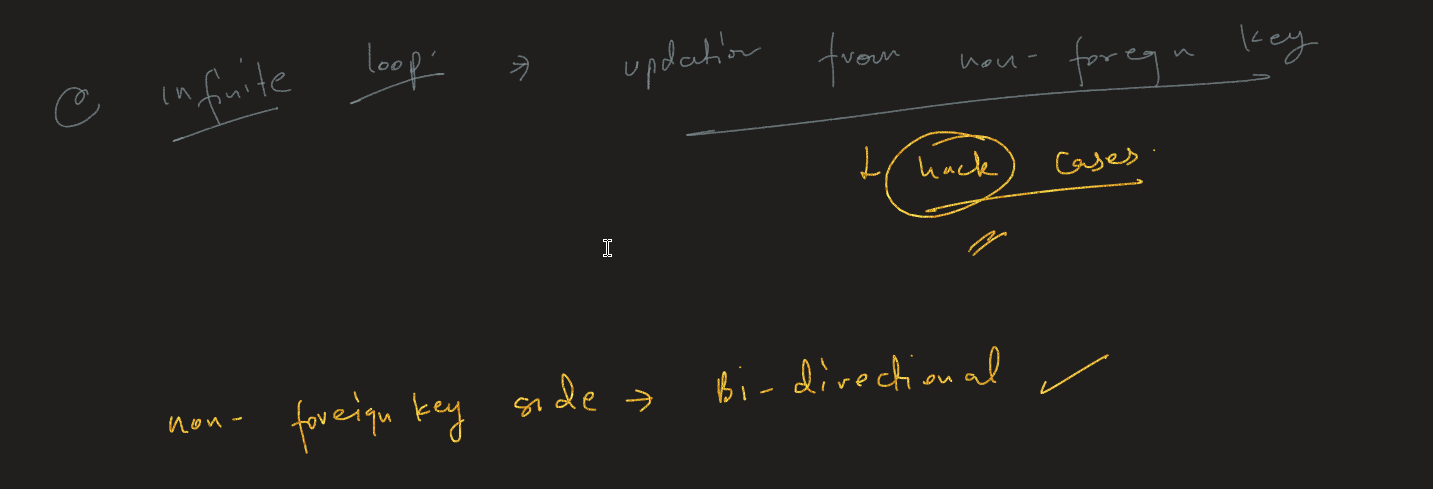 infinite loop. → updation from non-foregn key
↓ hack cases.
non-foreign key side → Bi-directional ✓